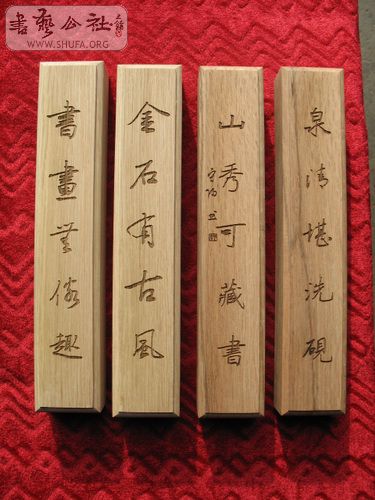 書藝公社
WWW.SHUFA.ORG
泉清堪洗硯
山秀可藏書
金石有古風
書畫無俗趣